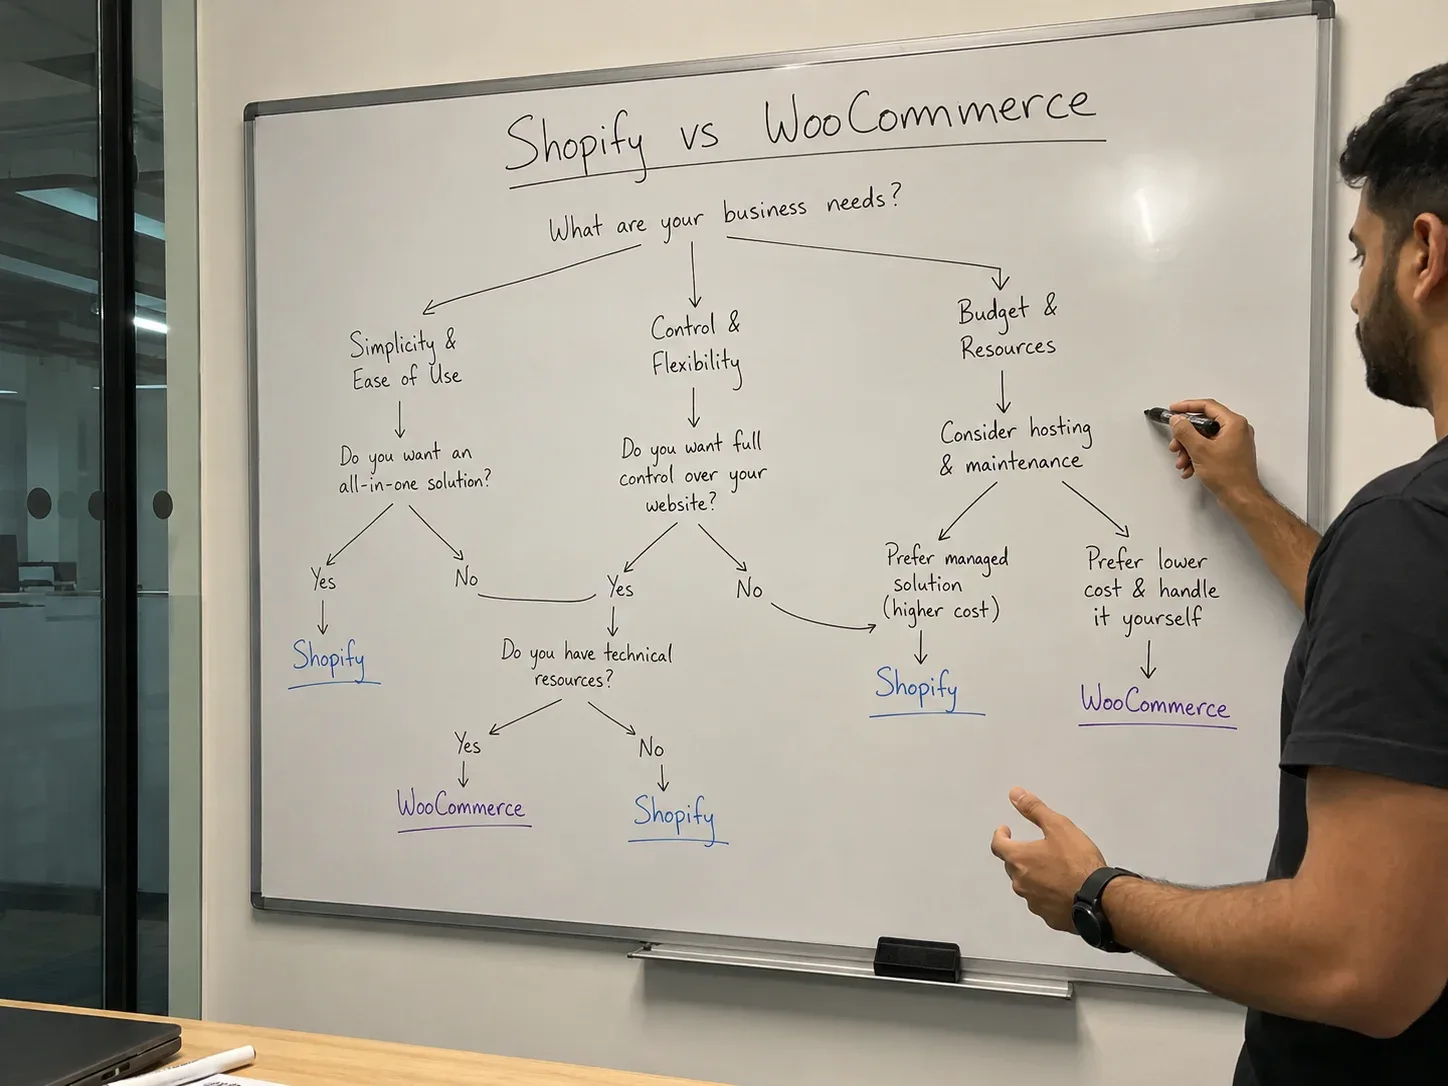 Shopify vs WooCommerce
What are your business needs?
Simplicity &
Ease of Use
Do you want an
all-in-one solution?
Yes
No
Shopify
Control &
Flexibility
Do you want full
control over your
website?
Yes
No
Do you have technical
resources?
Yes
No
WooCommerce
Shopify
Budget &
Resources
Consider hosting
& maintenance
Prefer managed
solution
(higher cost)
Shopify
Prefer lower
cost & handle
it yourself
WooCommerce